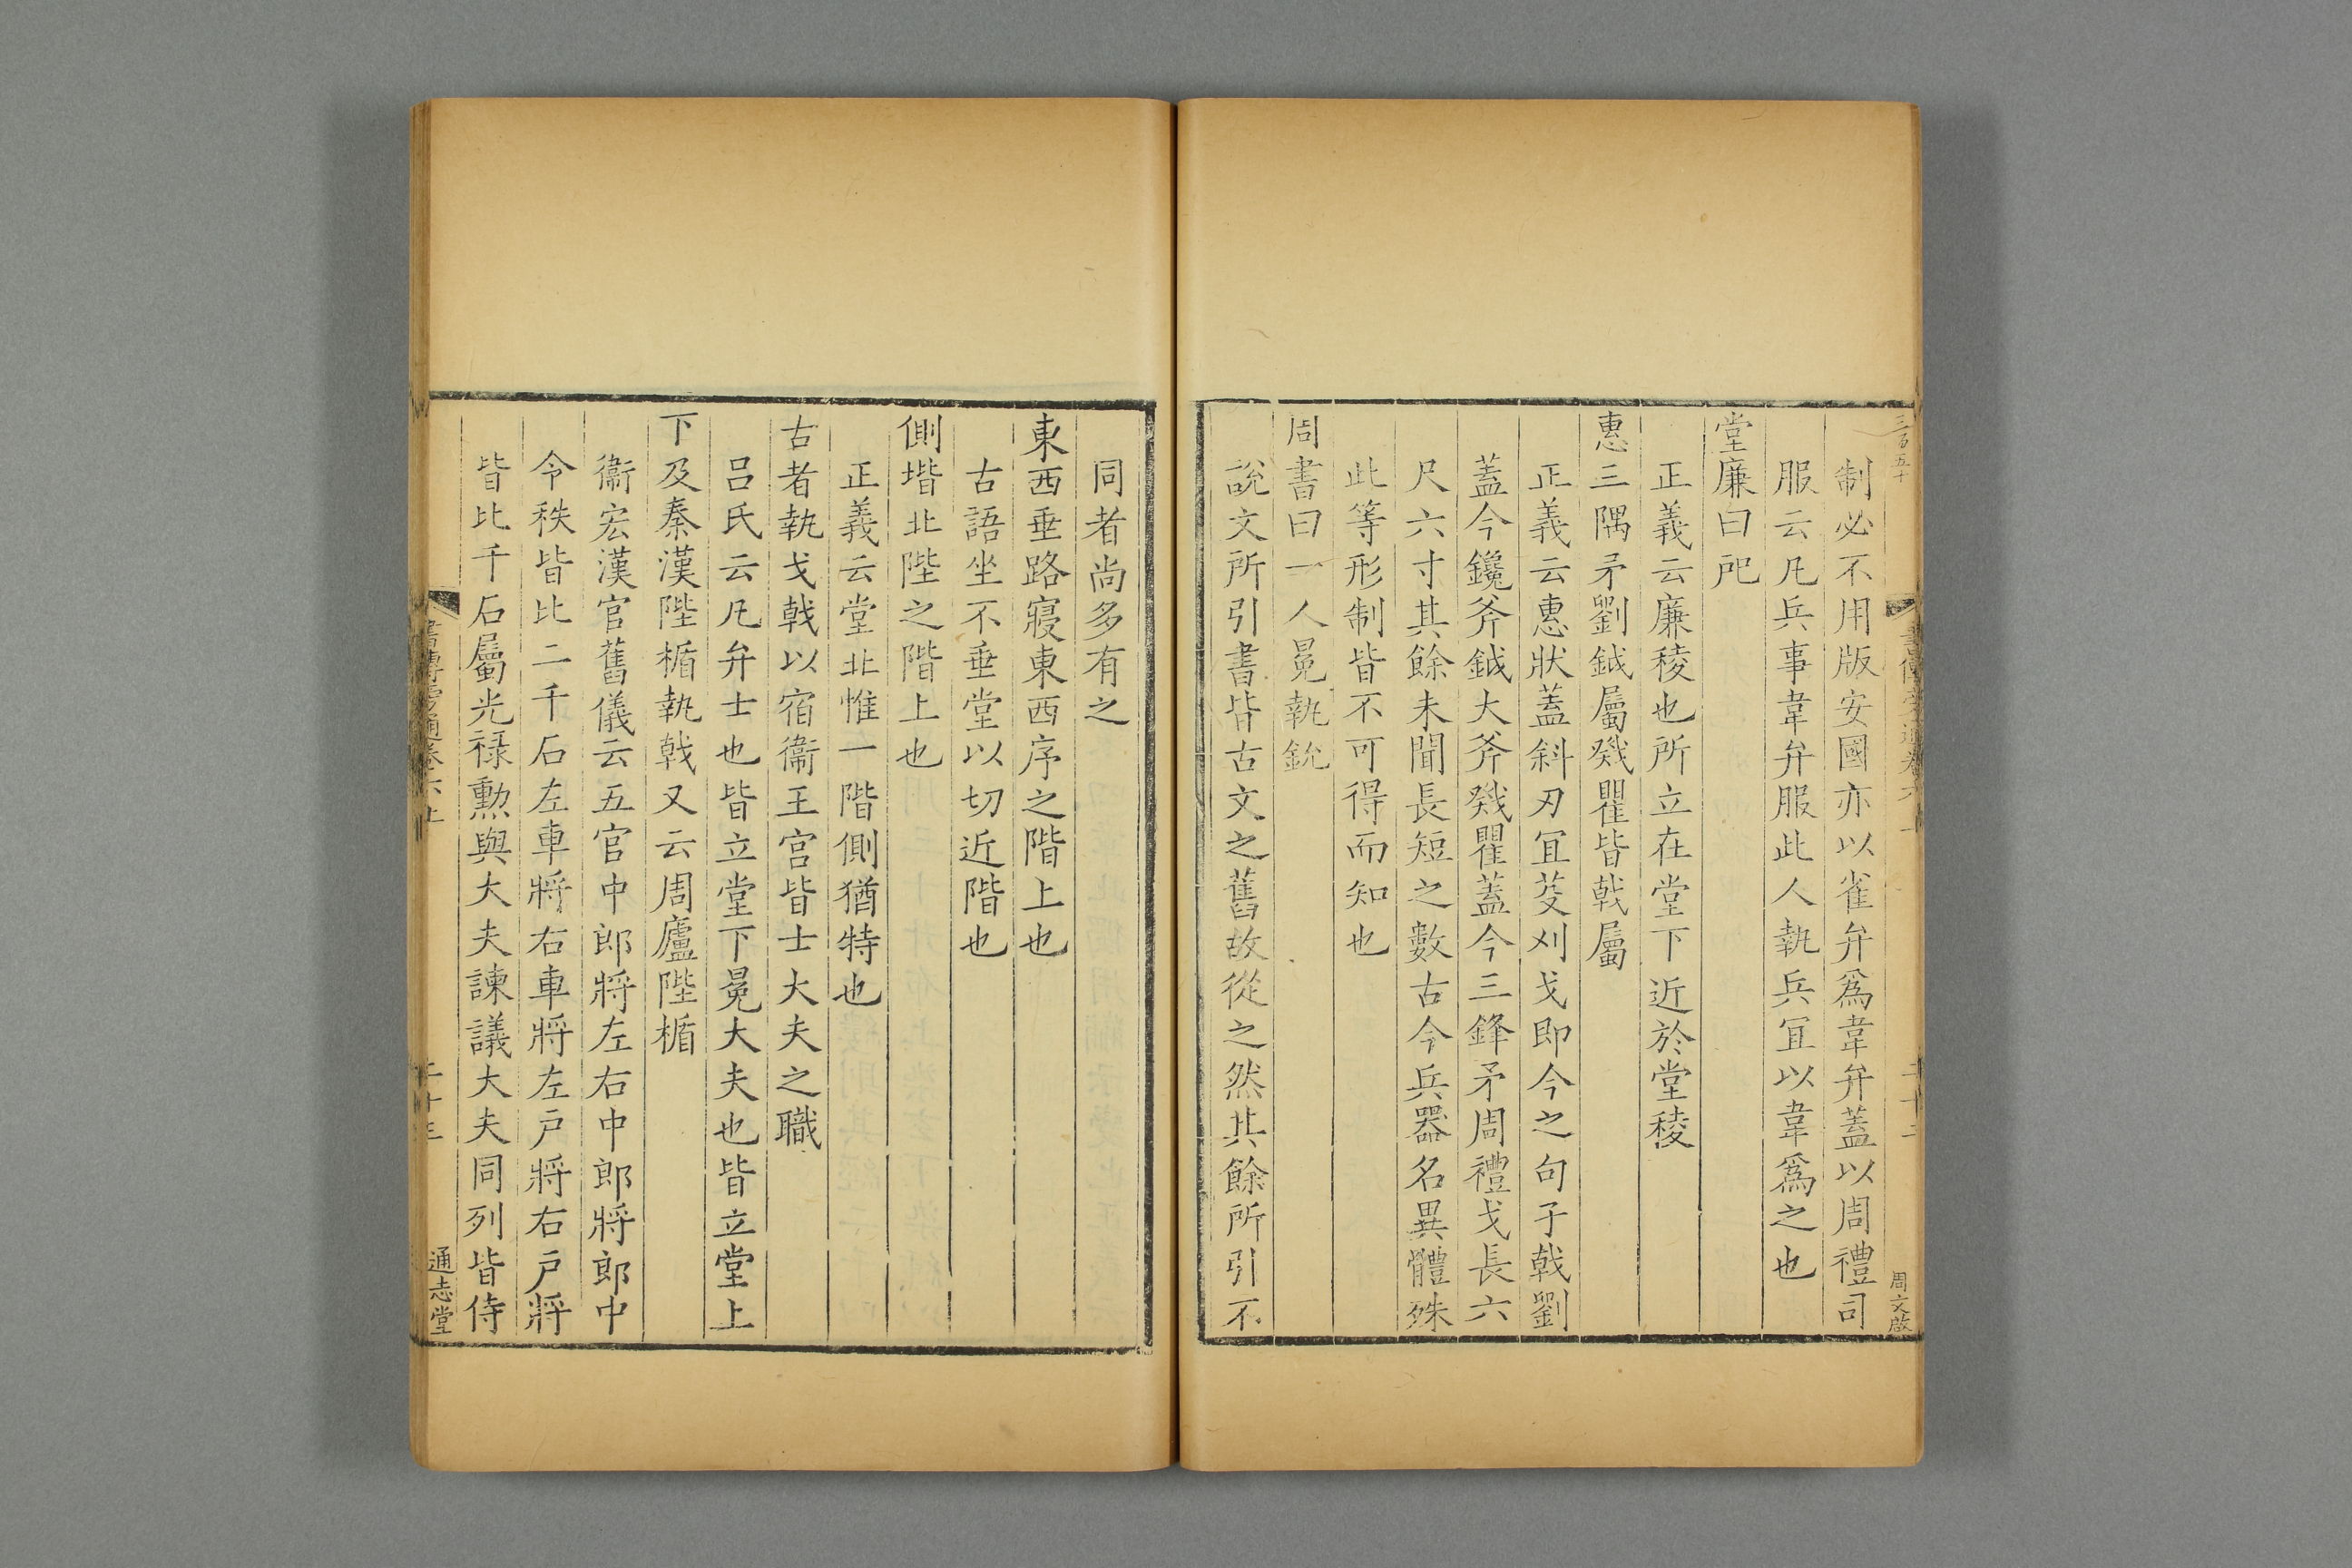 三百五十
制必不用版安國亦以雀弁爲韋弁蓋以周禮司
服云凡兵事韋弁服此人執兵宜以韋爲之也
堂廉曰戺
正義云廉稜也所立在堂下近於堂稜
惠三隅矛劉鉞屬戣瞿皆戟屬
正義云惠狀蓋斜刃宜芟刈戈即今之句孑戟劉
蓋今鑱斧鉞大斧戣瞿蓋今三鋒矛周禮戈長六
尺六寸其餘未聞長短之數古今兵器名異體殊
此等形制皆不可得而知也
周書曰一人冕執鈗
說文所引書皆古文之舊故從之然其餘所引不
周文啟
同者尚多有之
東西垂路寢東西序之階上也
古語坐不垂堂以切近階也
側堦北陛之階上也
正義云堂北惟一階側猶特也
古者執戈戟以宿衞王宫皆士大夫之職
吕氏云凡弁士也皆立堂下冕大夫也皆立堂上
下及秦漢陛楯執戟又云周廬陛楯
衞宏漢官舊儀云五官中郎將左右中郎將郎中
令秩皆比二千石左車將右車將左戸將右戸將
皆比千石屬光禄勲與大夫諫議大夫同列皆侍
書傳旁通卷六上
二十三
通志堂